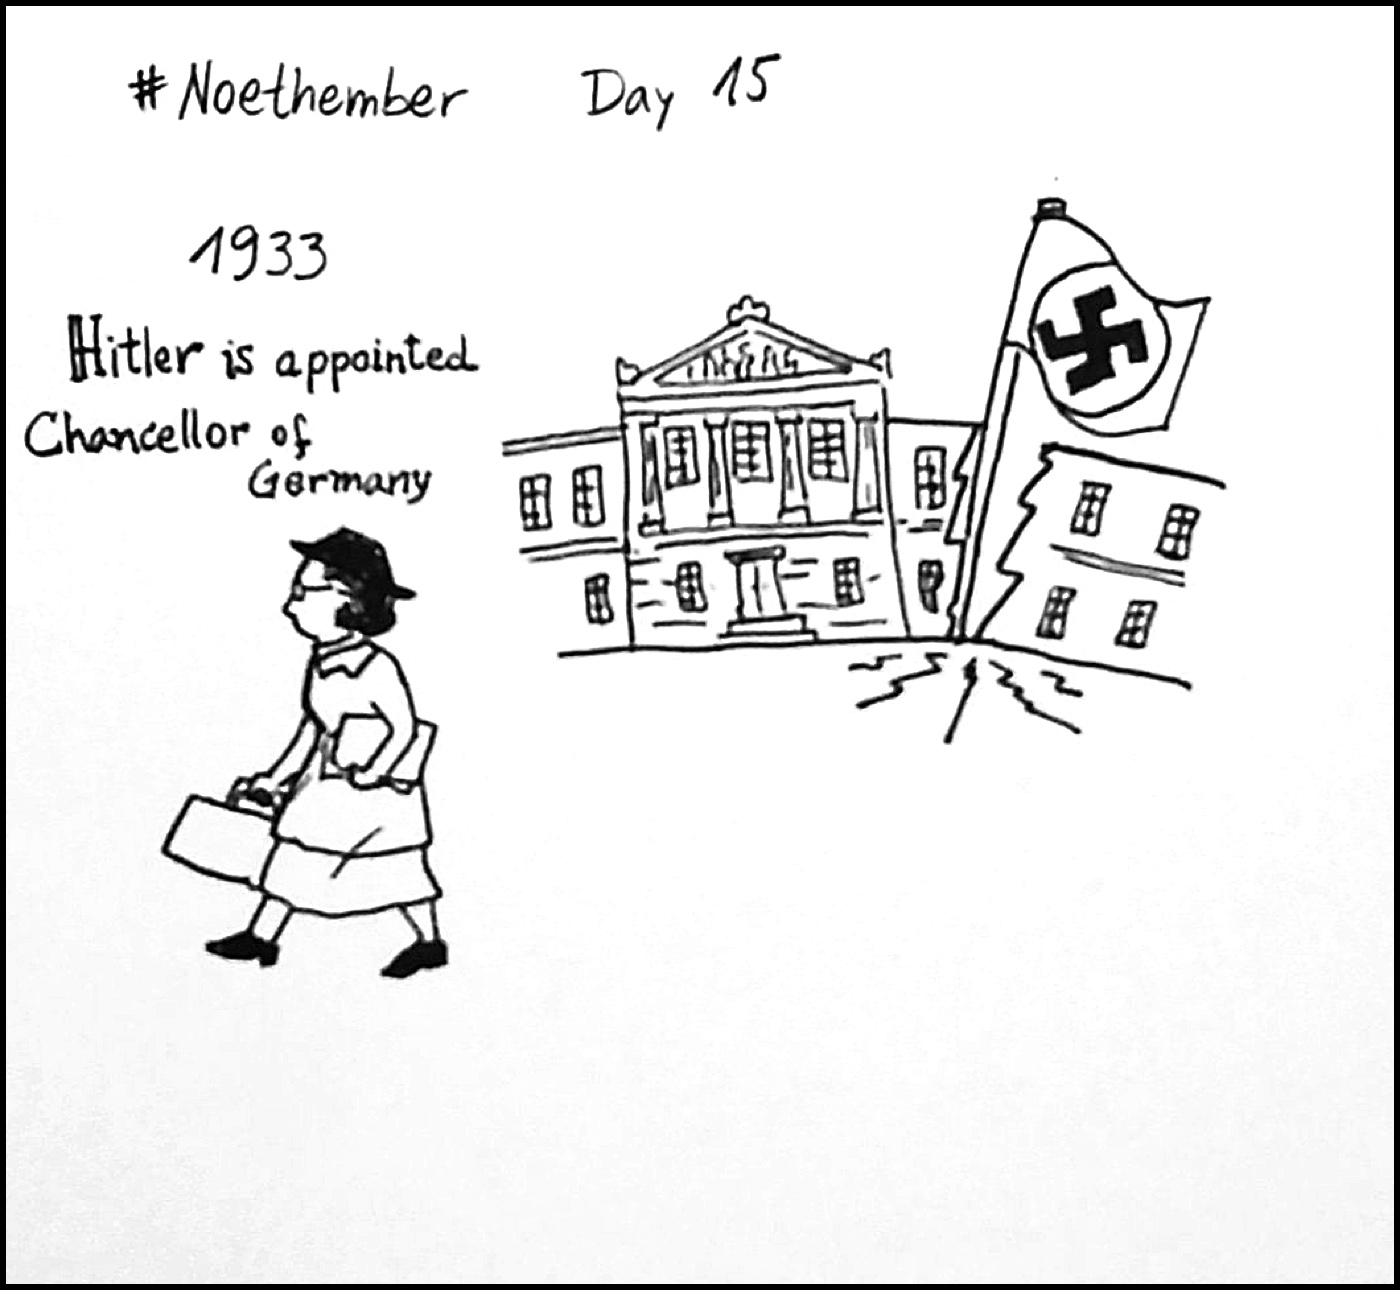 #Noethember Day 15
1933
Hitler is appointed
Chancellor of
Germany